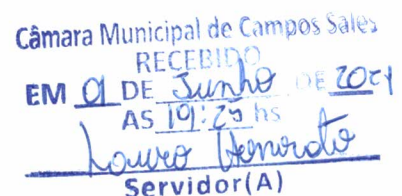 Câmara Municipal de Campos Sales
RECEBIDO
EM 01 DE Junho DE 2021
AS 19:25 hs
Servidor(A)